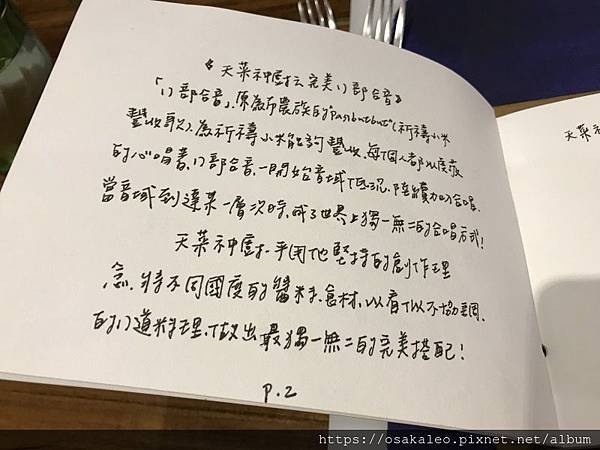 《天菜神 完美八部合音》
「八部合音」,原為布農族的"Pasibutbut"(祈禱小米
豐收歌),為祈禱小米能夠豐收,每個人都以虔誠
的心唱著,八部合音,一開始音域低沉,陸續加入合唱.
當音域到達某一層次時,成了世界上獨一無二的合唱方式!
天菜神 用他堅持的創作理
念,將不同國度的醬料,食材,以看似不協調.
的八道料理,做出最獨一無二的完美搭配!
P.2
天菜
https://osakaleo.pixnet.net/album